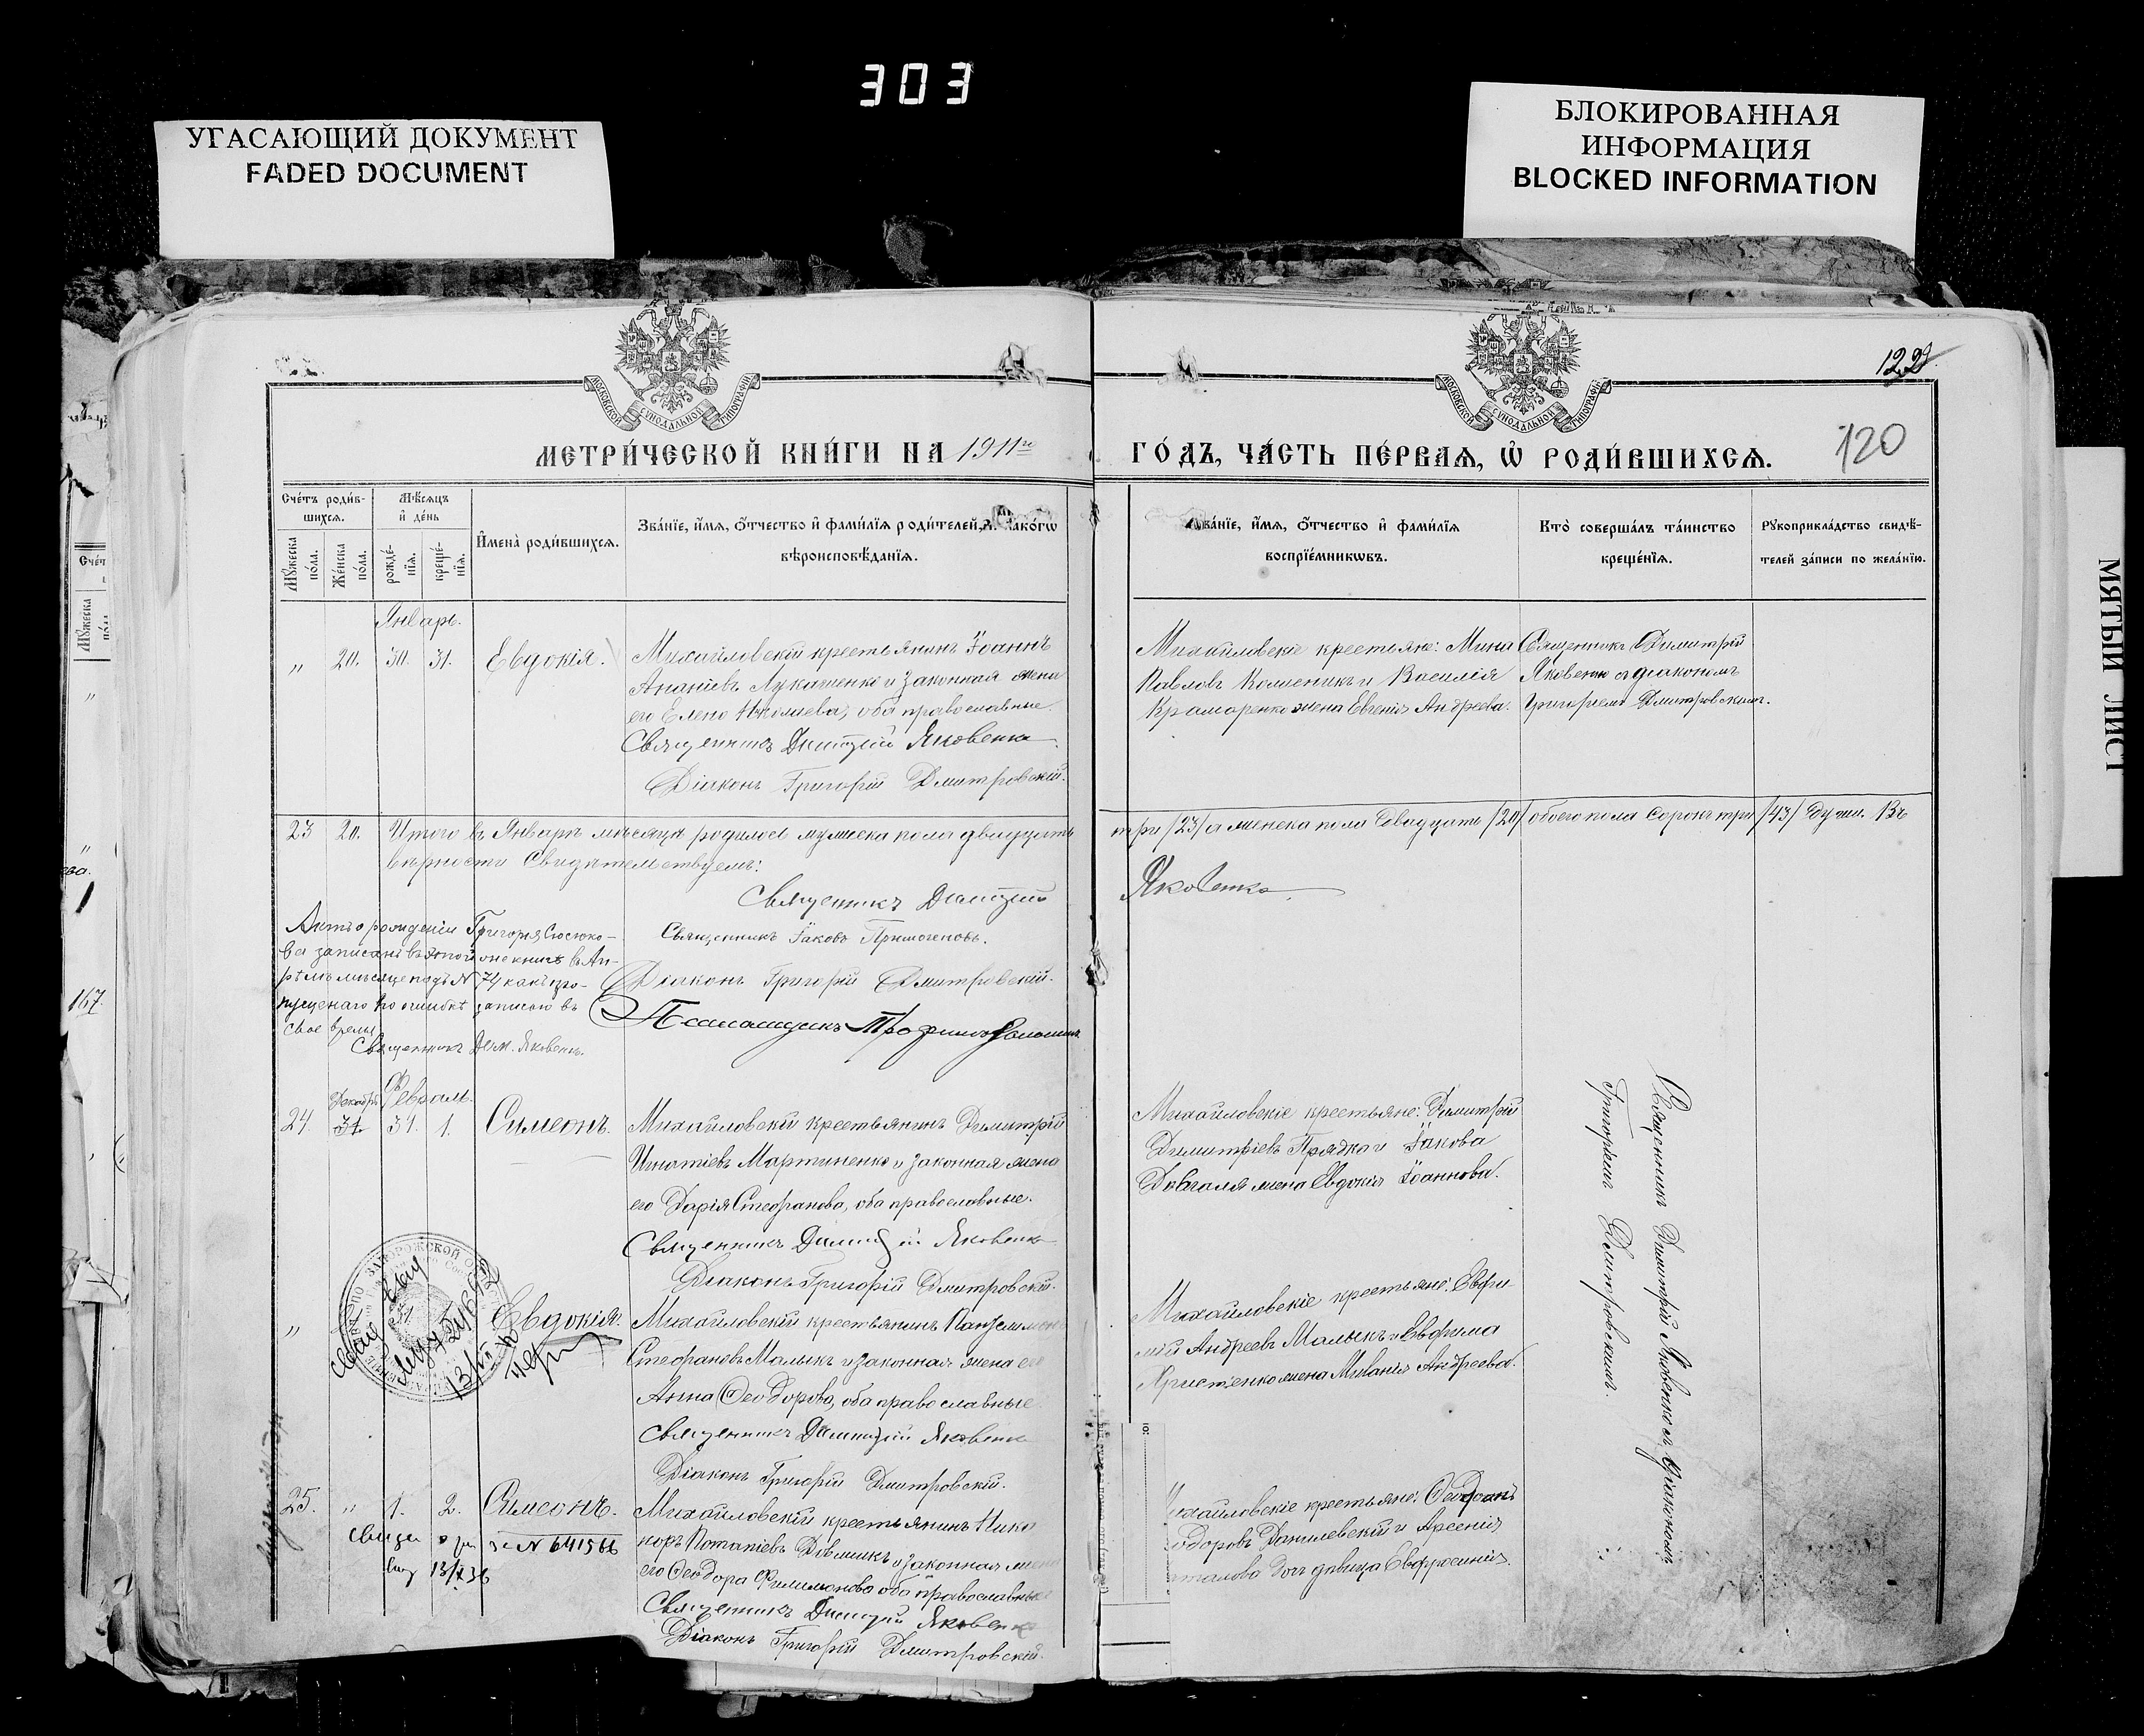 303
УГАСАЮЩИЙ ДОКУМЕНТ
FADED DOCUMENT
БЛОКИРОВАННАЯ
ИНФОРМАЦИЯ
BLOCKED INFORMATION
МЯТЫЙ ЛИСТ
МОСКОВСКОЙ СѴНОДАЛЬНОЙ ТИПОГРАФІИ
МОСКОВСКОЙ СѴНОДАЛЬНОЙ ТИПОГРАФІИ
122
120
МЕТРИ́ЧЕСКОЙ КНИ́ГИ НА 1911й
ГО́ДЪ, ЧА́СТЬ ПЕ́РВАѦ, Ѡ҆ РОДИ́ВШИХСѦ.
Сче́тъ роди́в-
шихсѧ.
Мѣ́сѧцъ
и҆ де́нь
Мꙋ́жеска
по́ла.
Же́нска
по́ла.
рожде́-
нїѧ.
креще́-
нїѧ.
И҆мена̀ роди́вшихсѧ.
Зва́нїе, и҆́мѧ, ѻ҆́тчество и҆ фами́лїѧ роди́телей, и҆ како́гѡ
вѣроисповѣ́данїѧ.
Зва́нїе, и҆́мѧ, ѻ҆́тчество и҆ фами́лїѧ
воспрїе́мникѡвъ.
Кто̀ соверша́лъ та́инство
креще́нїѧ.
Рꙋкоприкла́дство свидѣ́-
телей за́писи по жела́нїю.
Январь.
„ 20. 30. 31. Евдокія.
Михайловскій крестьянинъ Іоаннъ
Ананіевъ Лукашенко и законная жена
его Елена Николаева, оба православные.
Священникъ Димитрій Яковенко
Діаконъ Григорій Дмитровскій.
Михайловскіе крестьяне: Мина
Павловъ Колесникъ и Василія
Крамаренко жена Евгенія Андреева.
Священникъ Димитрій
Яковенко съ діакономъ
Григоріемъ Дмитровскимъ.
23 20. Итого въ Январѣ мѣсяцѣ родилось мужеска пола двадцать
три /23/ а женска пола двадцать /20/ обоего пола сорокъ три /43/ души. Въ
вѣрности свидѣтельствуемъ:
Священникъ Димитрій
Яковенко
Священникъ Іаковъ Примогеновъ.
Діаконъ Григорій Дмитровскій.
Псаломщикъ Трофимъ
Актъ о рожденіи Григорія Сосюко-
ва записанъ въ этой же книгѣ въ Ап-
рѣлѣ мѣсяце подъ № 74 какъ про-
пущеннаго по ошибкѣ записью въ
свое время
Священникъ Дим. Яковенко.
Декабрь Февраль.
24. 31 31. 1. Симеонъ.
Михайловскій крестьянинъ Димитрій
Игнатіевъ Мартиненко и законная жена
его Дарія Стефанова, оба православные.
Священникъ Димитрій Яковенко
Діаконъ Григорій Дмитровскій.
Михайловскіе крестьяне: Димитрій
Димитріевъ Прядка и Іакова
Довгаля жена Евдокія Іоаннова.
Священникъ Димитрій Яковенко съ діакономъ
Григоріемъ Дмитровскимъ.
„ Евдокія.
Михайловскій крестьянинъ Пантелимонъ
Стефановъ Малыкъ и законная жена его
Анна Ѳеодорова, оба православные
Священникъ Димитрій Яковенко
Діаконъ Григорій Дмитровскій.
Михайловскіе крестьяне: Евфи-
мій Андреевъ Малыкъ и Евфима
Христенко жена Миланія Андреева.
25. „ 1. 2. Симеонъ.
№ 641566
13/X 36
Михайловскій крестьянинъ Ника-
норъ Потапіевъ и законная жена
его Ѳеодора Филимонова оба православные
Священникъ Димитрій Яковенко
Діаконъ Григорій Дмитровскій.
Михайловскіе крестьяне:
Данилевскій и Арсенія
дочь дѣвица Евфросинія.
167.